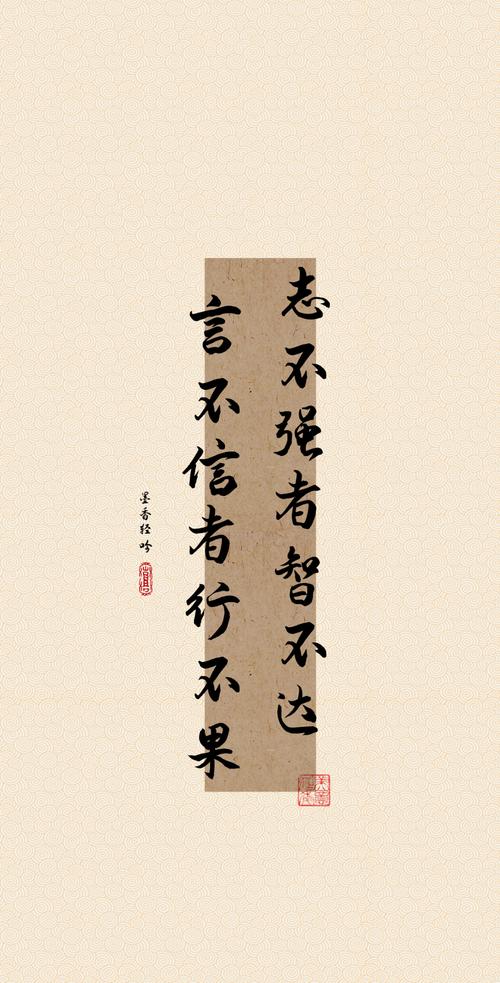 志不强者智不达
言不信者行不果
墨香轻吟